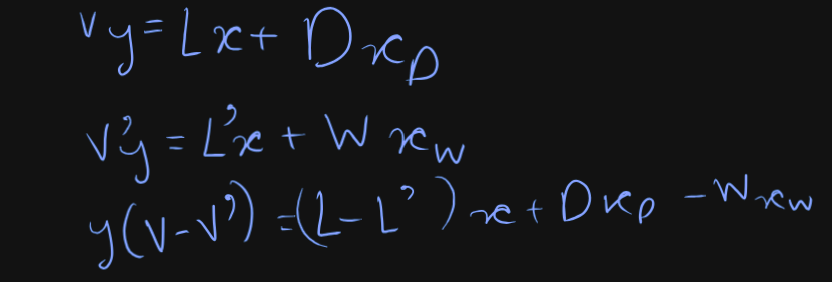 Vy = Lx + Dx_D
V'y = L'x + W x_W
y(V-V') = (L-L')x + Dx_D - Wx_W